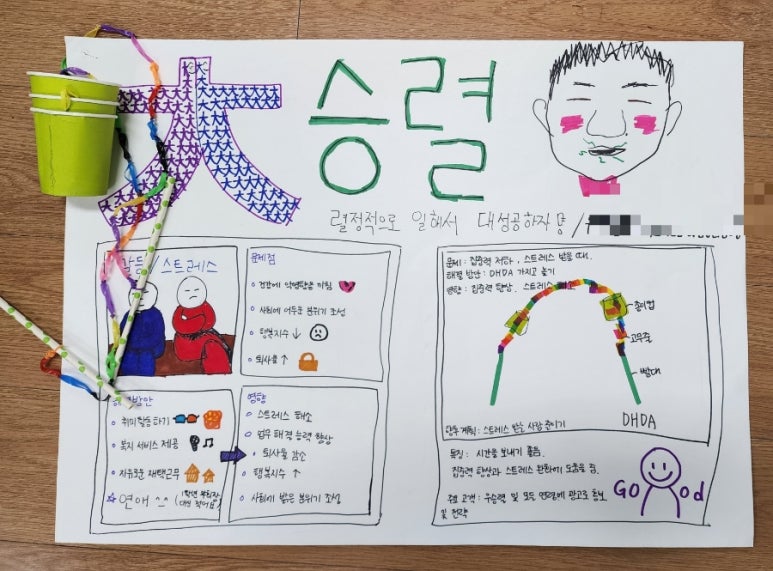 大승렬
렬정적으로 일해서 대성공하자
갈등/스트레스
문제점
건강에 악영향을 끼침
사회에 어두운 분위기 조성
행복지수 ↓
퇴사율 ↑
해결방안
취미활동하기
복지 서비스 제공
자유로운 재택근무
연애 ^_^
영향
스트레스 해소
업무 해결 능력 향상
퇴사율 감소
행복지수 ↑
사회에 밝은 분위기 조성
문제 : 집중력 저하, 스트레스 받을 때.
해결 방안 : DHDA 가지고 놀기
영향 : 집중력 향상, 스트레스 감소
종이컵
고무줄
빨대
DHDA
향후 계획 : 스트레스 받을 사람 준이기
특징 : 시간을 보내기 좋음.
집중력 향상과 스트레스 완화에 도움을 줌.
주요 고객 : 우승력 및 모든 연령에 광고로 홍보
및 전략
Good